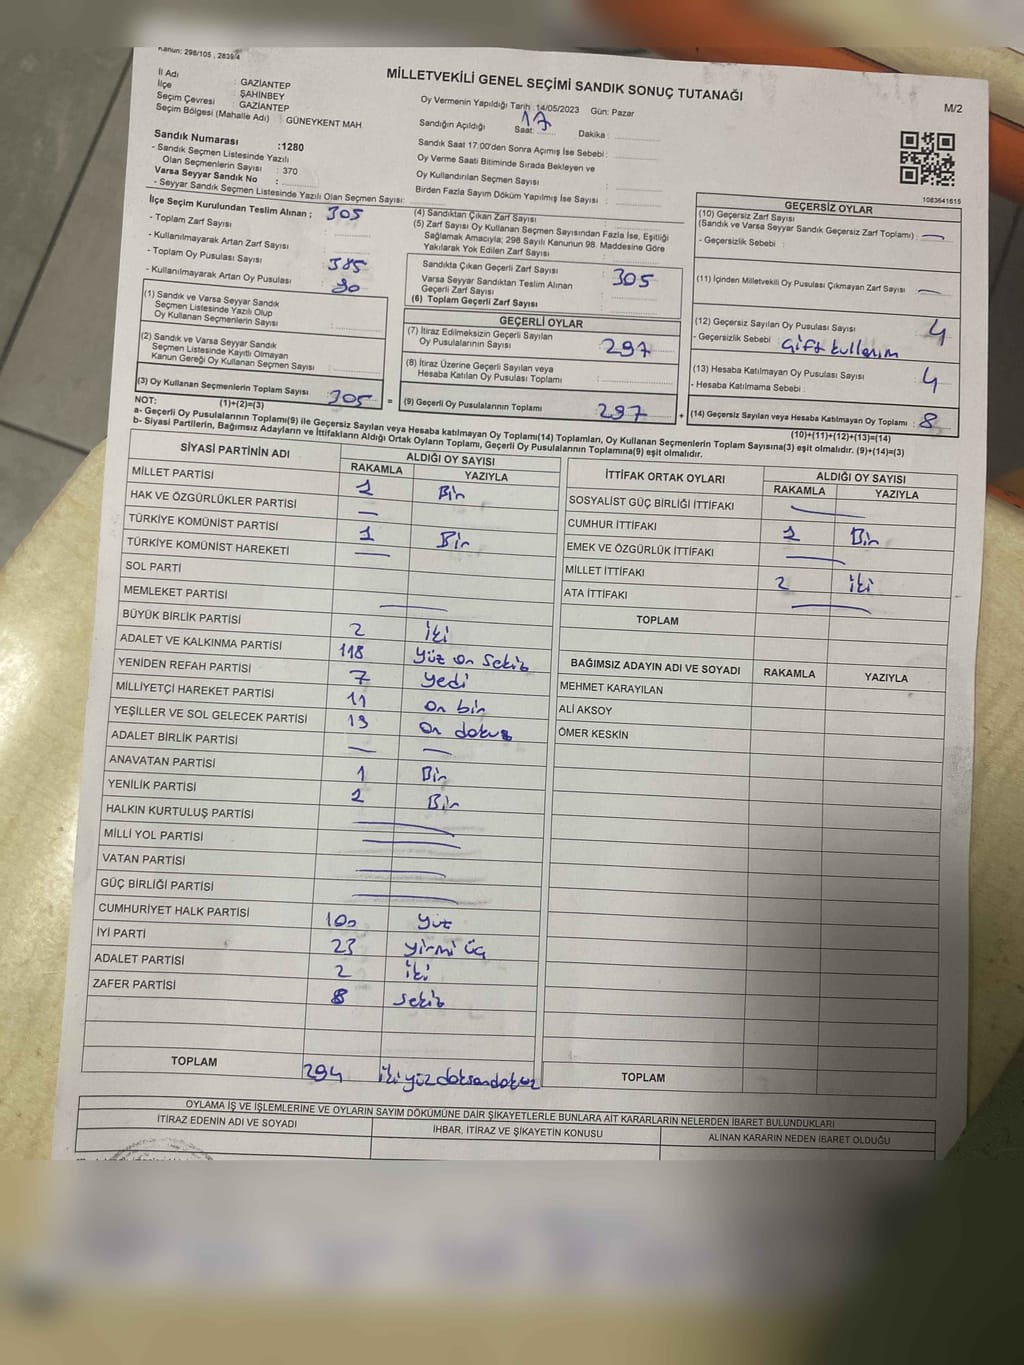 Kanun: 298/105 , 2839/4
MİLLETVEKİLİ GENEL SEÇİMİ SANDIK SONUÇ TUTANAĞI
M/2
İl Adı : GAZİANTEP
İlçe : ŞAHİNBEY
Seçim Çevresi : GAZİANTEP
Seçim Bölgesi (Mahalle Adı) : GÜNEYKENT MAH.
Sandık Numarası :1280
- Sandık Seçmen Listesinde Yazılı
Olan Seçmenlerin Sayısı : 370
Varsa Seyyar Sandık No :
- Seyyar Sandık Seçmen Listesinde Yazılı Olan Seçmen Sayısı:
Oy Vermenin Yapıldığı Tarih :14/05/2023 Gün: Pazar
Sandığın Açıldığı Saat: 17 Dakika :
Sandık Saat 17:00'den Sonra Açımış İse Sebebi :
Oy Verme Saati Bitiminde Sırada Bekleyen ve
Oy Kullandırılan Seçmen Sayısı :
Birden Fazla Sayım Döküm Yapılmış İse Sayısı :
1083641615
İlçe Seçim Kurulundan Teslim Alınan ; 305
- Toplam Zarf Sayısı :
- Kullanılmayarak Artan Zarf Sayısı :
- Toplam Oy Pusulası Sayısı : 385
- Kullanılmayarak Artan Oy Pusulası : 80
(1) Sandık ve Varsa Seyyar Sandık
Seçmen Listesinde Yazılı Olup
Oy Kullanan Seçmenlerin Sayısı :
(2) Sandık ve Varsa Seyyar Sandık
Seçmen Listesinde Kayıtlı Olmayan
Kanun Gereği Oy Kullanan Seçmen Sayısı :
(3) Oy Kullanan Seçmenlerin Toplam Sayısı : 305 =
(1)+(2)=(3)
(4) Sandıktan Çıkan Zarf Sayısı :
(5) Zarf Sayısı Oy Kullanan Seçmen Sayısından Fazla İse, Eşitliği
Sağlamak Amacıyla; 298 Sayılı Kanunun 98. Maddesine Göre
Yakılarak Yok Edilen Zarf Sayısı :
Sandıkta Çıkan Geçerli Zarf Sayısı : 305
Varsa Seyyar Sandıktan Teslim Alınan
Geçerli Zarf Sayısı :
(6) Toplam Geçerli Zarf Sayısı :
GEÇERLİ OYLAR
(7) İtiraz Edilmeksizin Geçerli Sayılan
Oy Pusulalarının Sayısı : 297
(8) İtiraz Üzerine Geçerli Sayılan veya
Hesaba Katılan Oy Pusulası Toplamı :
(9) Geçerli Oy Pusulalarının Toplamı : 297 +
GEÇERSİZ OYLAR
(10) Geçersiz Zarf Sayısı
(Sandık ve Varsa Seyyar Sandık Geçersiz Zarf Toplamı) : —
- Geçersizlik Sebebi :
(11) İçinden Milletvekili Oy Pusulası Çıkmayan Zarf Sayısı : —
(12) Geçersiz Sayılan Oy Pusulası Sayısı : 4
- Geçersizlik Sebebi : Çift kullanım
(13) Hesaba Katılmayan Oy Pusulası Sayısı : 4
- Hesaba Katılmama Sebebi :
(14) Geçersiz Sayılan veya Hesaba Katılmayan Oy Toplamı : 8
(10)+(11)+(12)+(13)=(14)
NOT:
a- Geçerli Oy Pusulalarının Toplamı(9) ile Geçersiz Sayılan veya Hesaba katılmayan Oy Toplamı(14) Toplamları, Oy Kullanan Seçmenlerin Toplam Sayısına(3) eşit olmalıdır. (9)+(14)=(3)
b- Siyasi Partilerin, Bağımsız Adayların ve İttifakların Aldığı Ortak Oyların Toplamı, Geçerli Oy Pusulalarının Toplamına(9) eşit olmalıdır.
SİYASİ PARTİNİN ADI ALDIĞI OY SAYISI
RAKAMLA YAZIYLA
MİLLET PARTİSİ 1 Bir
HAK VE ÖZGÜRLÜKLER PARTİSİ —
TÜRKİYE KOMÜNİST PARTİSİ 1 Bir
TÜRKİYE KOMÜNİST HAREKETİ —
SOL PARTİ
MEMLEKET PARTİSİ —
BÜYÜK BİRLİK PARTİSİ 2 iki
ADALET VE KALKINMA PARTİSİ 118 yüz on sekiz
YENİDEN REFAH PARTİSİ 7 yedi
MİLLİYETÇİ HAREKET PARTİSİ 11 on bir
YEŞİLLER VE SOL GELECEK PARTİSİ 19 on dokuz
ADALET BİRLİK PARTİSİ — —
ANAVATAN PARTİSİ 1 Bir
YENİLİK PARTİSİ 1 Bir
HALKIN KURTULUŞ PARTİSİ —
MİLLİ YOL PARTİSİ —
VATAN PARTİSİ —
GÜÇ BİRLİĞİ PARTİSİ —
CUMHURİYET HALK PARTİSİ 100 yüz
İYİ PARTİ 23 yirmi üç
ADALET PARTİSİ 2 iki
ZAFER PARTİSİ 8 sekiz
TOPLAM 294 iki yüz doksandokuz
İTTİFAK ORTAK OYLARI ALDIĞI OY SAYISI
RAKAMLA YAZIYLA
SOSYALİST GÜÇ BİRLİĞİ İTTİFAKI —
CUMHUR İTTİFAKI 1 Bir
EMEK VE ÖZGÜRLÜK İTTİFAKI —
MİLLET İTTİFAKI 2 iki
ATA İTTİFAKI —
TOPLAM
BAĞIMSIZ ADAYIN ADI VE SOYADI RAKAMLA YAZIYLA
MEHMET KARAYILAN
ALİ AKSOY
ÖMER KESKİN
TOPLAM
OYLAMA İŞ VE İŞLEMLERİNE VE OYLARIN SAYIM DÖKÜMÜNE DAİR ŞİKAYETLERLE BUNLARA AİT KARARLARIN NELERDEN İBARET BULUNDUKLARI
İTİRAZ EDENİN ADI VE SOYADI İHBAR, İTİRAZ VE ŞİKAYETİN KONUSU ALINAN KARARIN NEDEN İBARET OLDUĞU